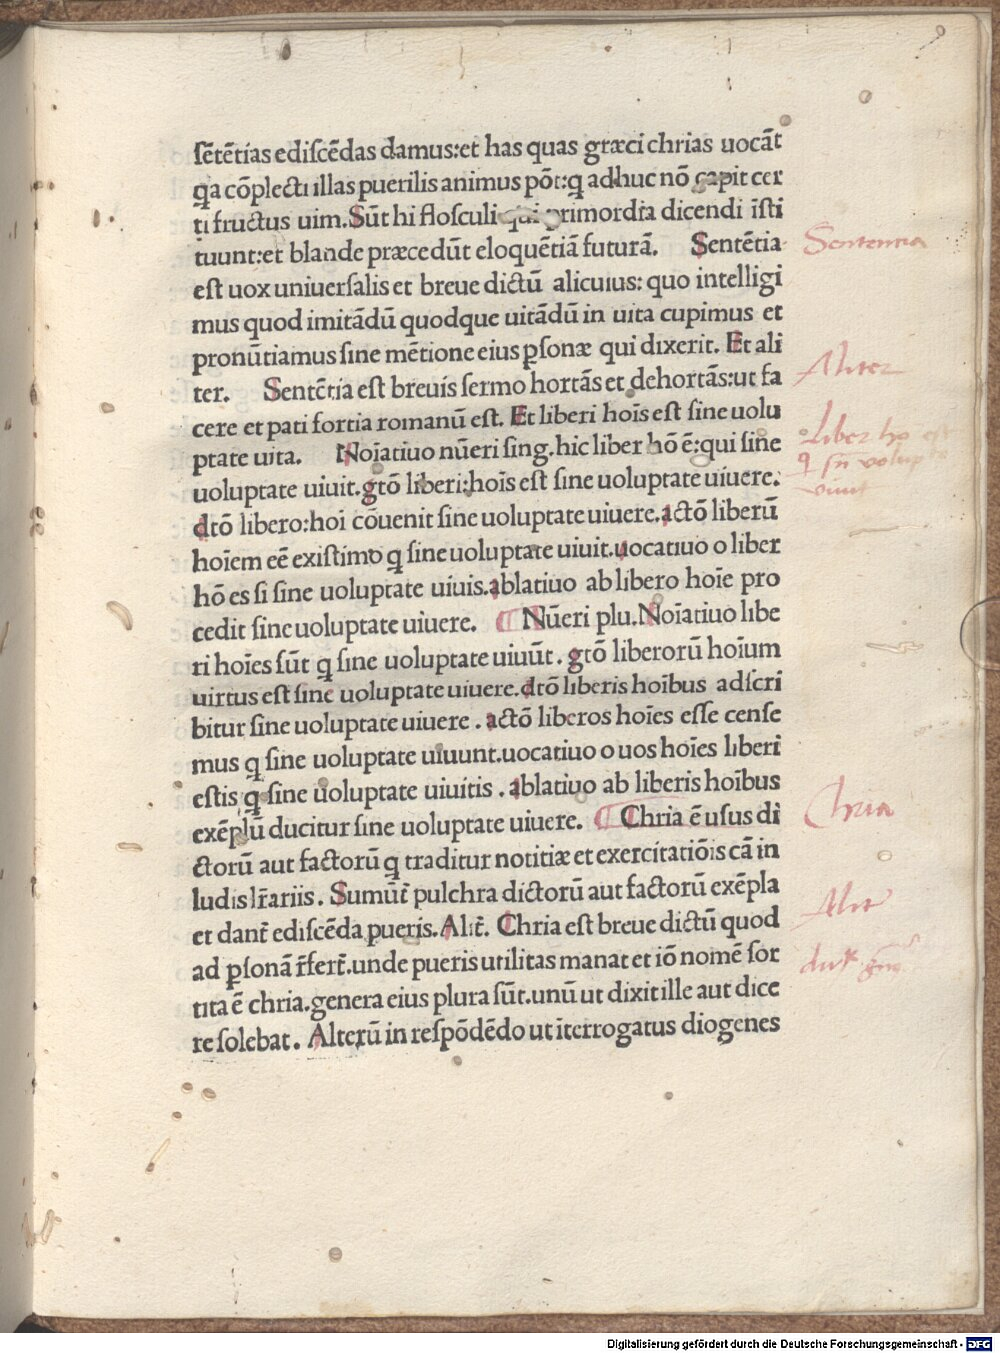 ſētētías ediſcēdas damus:et has quas græci chrias uocāt
qa cōplecti illas puerilis animus pōt:q adhuc nō capit cer
ti fructus uim.Sūt hi floſculi qui primordia dicendi īſti
tuunt:et blande præcedūt eloquētiā futurā. Sentētia
Sentencia
eſt uox uniuerſalis et breue dictū alicuius: quo intelligi
mus quod imitādū quodque uitādū in uita cupimus et
pronūtiamus ſine mētione eius pſonæ qui dixerit. Et ali
Aliter
ter. Sentētia eſt breuis ſermo hortās et dehortās:ut fa
cere et pati fortia romanū eſt. Et liberi hoīs eſt ſine uolu
ptate uita. Noīatiuo nūeri ſing.hic liber hō ē:qui ſine
Liber ho est
q sn volupt
viuit
uoluptate uiuit.gtō liberi:hoīs eſt ſine uoluptate uiuere.
dtō libero:hoī cōuenit ſine uoluptate uiuere.actō liberū
hoīem eē exiſtimo q ſine uoluptate uiuit.uocatiuo o liber
hō es ſi ſine uoluptate uiuis.ablatiuo ab libero hoīe pro
cedit ſine uoluptate uiuere. ¶ Nūeri plu.Noīatiuo libe
ri hoīes ſūt q ſine uoluptate uiuūt. gtō liberorū hoīum
uirtus eſt ſine uoluptate uiuere.dtō liberis hoībus adſcri
bitur ſine uoluptate uiuere . actō liberos hoīes eſſe cenſe
mus q ſine uoluptate uiuunt.uocatiuo o uos hoīes liberi
eſtis q ſine uoluptate uiuitis . ablatiuo ab liberis hoībus
exēplū ducitur ſine uoluptate uiuere. ¶ Chria ē uſus di
Chria
ctorū aut factorū q traditur notitiæ et exercitatiōis cā in
ludis lr̄ariis. Sumūt̄ pulchra dictorū aut factorū exēpla
et dant̄ ediſcēda pueris. Alit̄. Chria eſt breue dictū quod
Alit
ad pſonā r̄fert̄.unde pueris utilitas manat et iō nomē ſor
tita ē chria.genera eius plura ſūt.unū ut dixit ille aut dice
re ſolebat. Alterū in reſpōdēdo ut iterrogatus diogenes
Digitalisierung gefördert durch die Deutsche Forschungsgemeinschaft - DFG